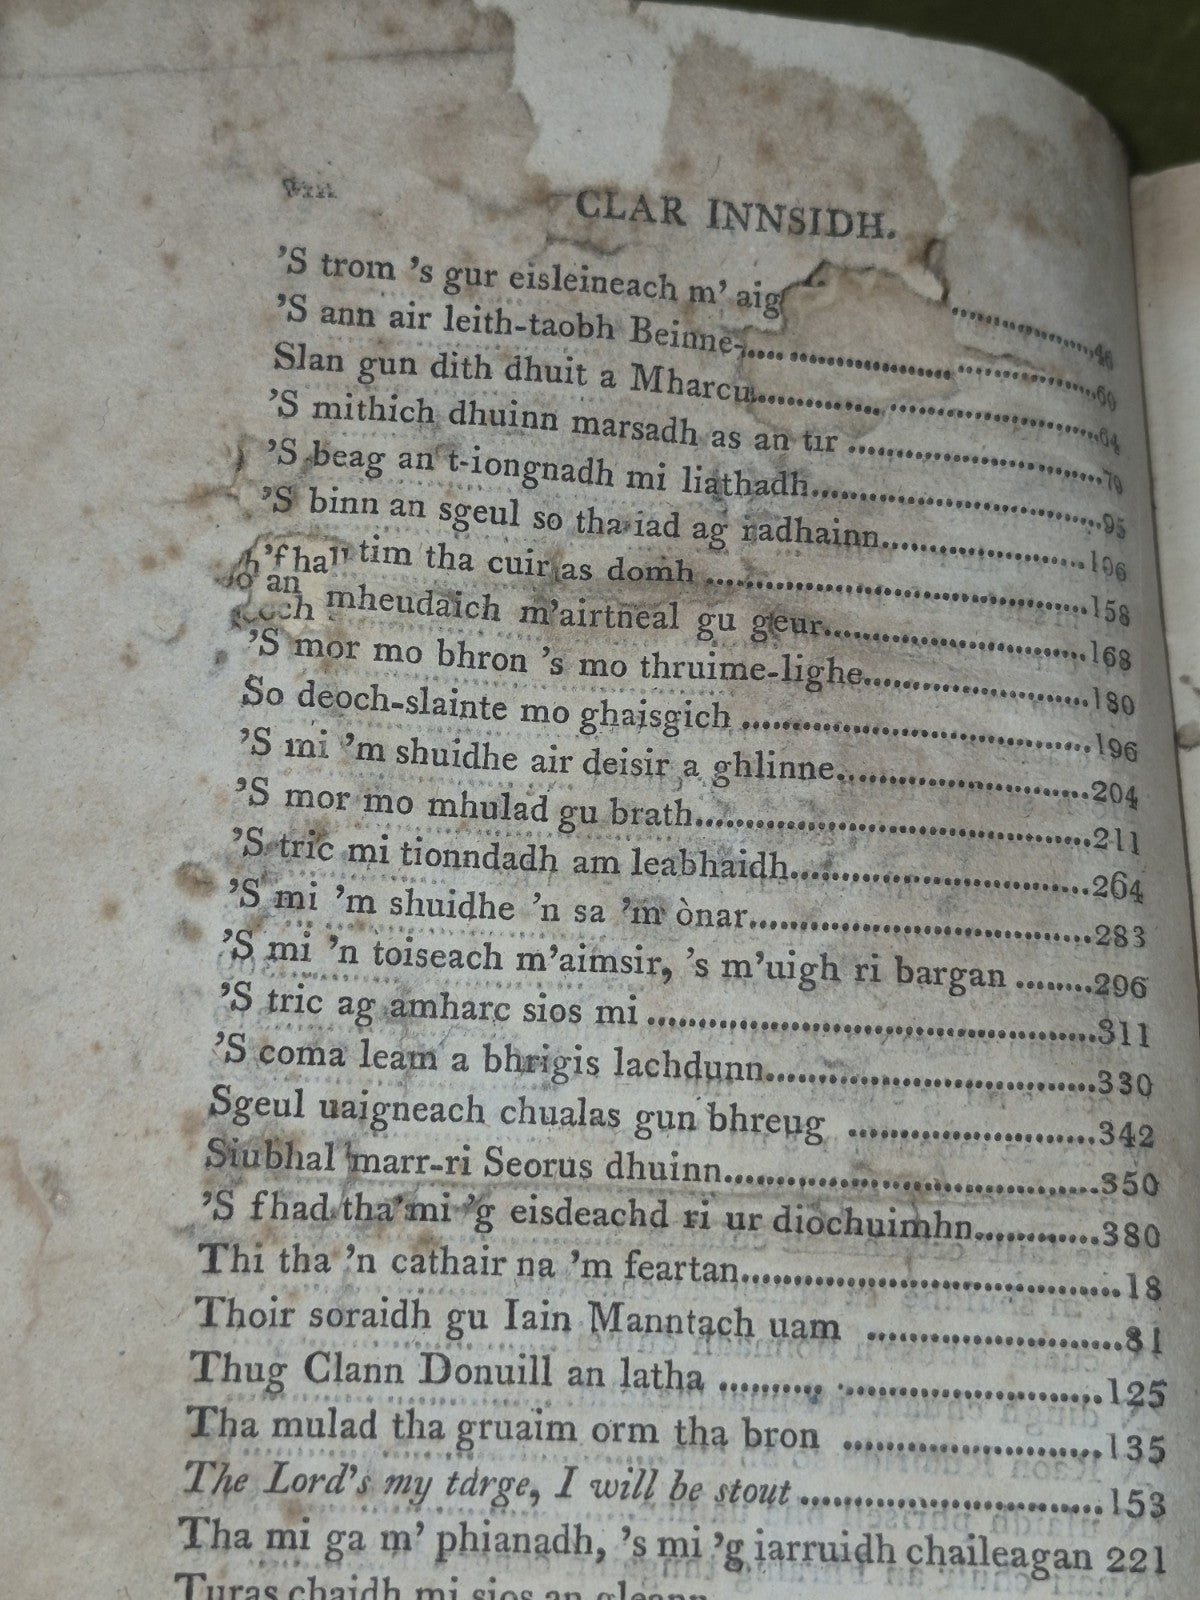 viii
CLAR INNSIDH.
'S trom 's gur eisleineach m' aig ..............46
'S ann air leith-taobh Beinne-....................60
Slan gun dith dhuit a Mharcu....................64
'S mithich dhuinn marsadh as an tır ....................79
'S beag an t-iongnadh mi liathadh....................95
'S binn an sgeul so tha iad ag radhainn....................106
tim tha cuir as domh ....................158
mheudaich m'airtneal gu geur....................168
'S mor mo bhron 's mo thruime-lighe....................180
So deoch-slainte mo ghaisgich ....................196
'S mi 'm shuidhe air deisir a ghlinne....................204
'S mor mo mhulad gu brath....................211
'S tric mi tionndadh am leabhaidh....................264
'S mi 'm shuidhe 'n sa 'm ònar....................283
'S mi 'n toiseach m'aimsir, 's m'uigh ri bargan ........296
'S tric ag amharc sios mi ....................311
'S coma leam a bhrigis lachdunn....................330
Sgeul uaigneach chualas gun bhreug ....................342
Siubhal marr-ri Seorus dhuinn....................350
'S fhad tha mi 'g eisdeachd ri ur diochuimhn............380
Thi tha 'n cathair na 'm feartan....................18
Thoir soraidh gu Iain Manntach uam ....................81
Thug Clann Donuill an latha ....................125
Tha mulad tha gruaim orm tha bron ....................135
The Lord's my targe, I will be stout ....................153
Tha mi ga m' phianadh, 's mi 'g iarruidh chaileagan 221
Turas chaidh mi sios an gleann